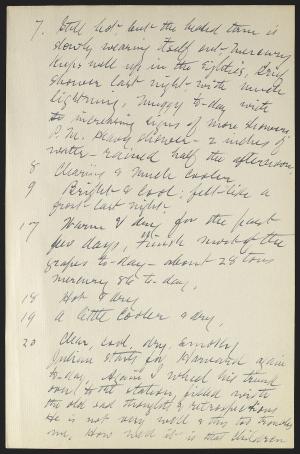 7. Still hot, but the heated term is
slowly wearing itself out - mercury
keeps well up in the Eighties. Brief
shower last night - with much
lightning, muggy to-day with
increasing signs of more showers.
P.M. heavy shower - 2 inches of
water - rained half the afternoon.
8 Clearing & much cooler
9 Bright & cool: felt like a
frost last night.
17 Warm & dry for the past
few days, Finish most of the
grapes to-day - about 28 tons
mercury 86 to-day.
18 Hot & dry
19 A little cooler & dry,
20 Clear, cool, dry, smoky
Julian starts for Harvard again
to-day. Again I wheel his trunk
over to the station, filled with
the old sad thoughts & retrospections
He is not very well & this too troubles
me. How sad it is that children